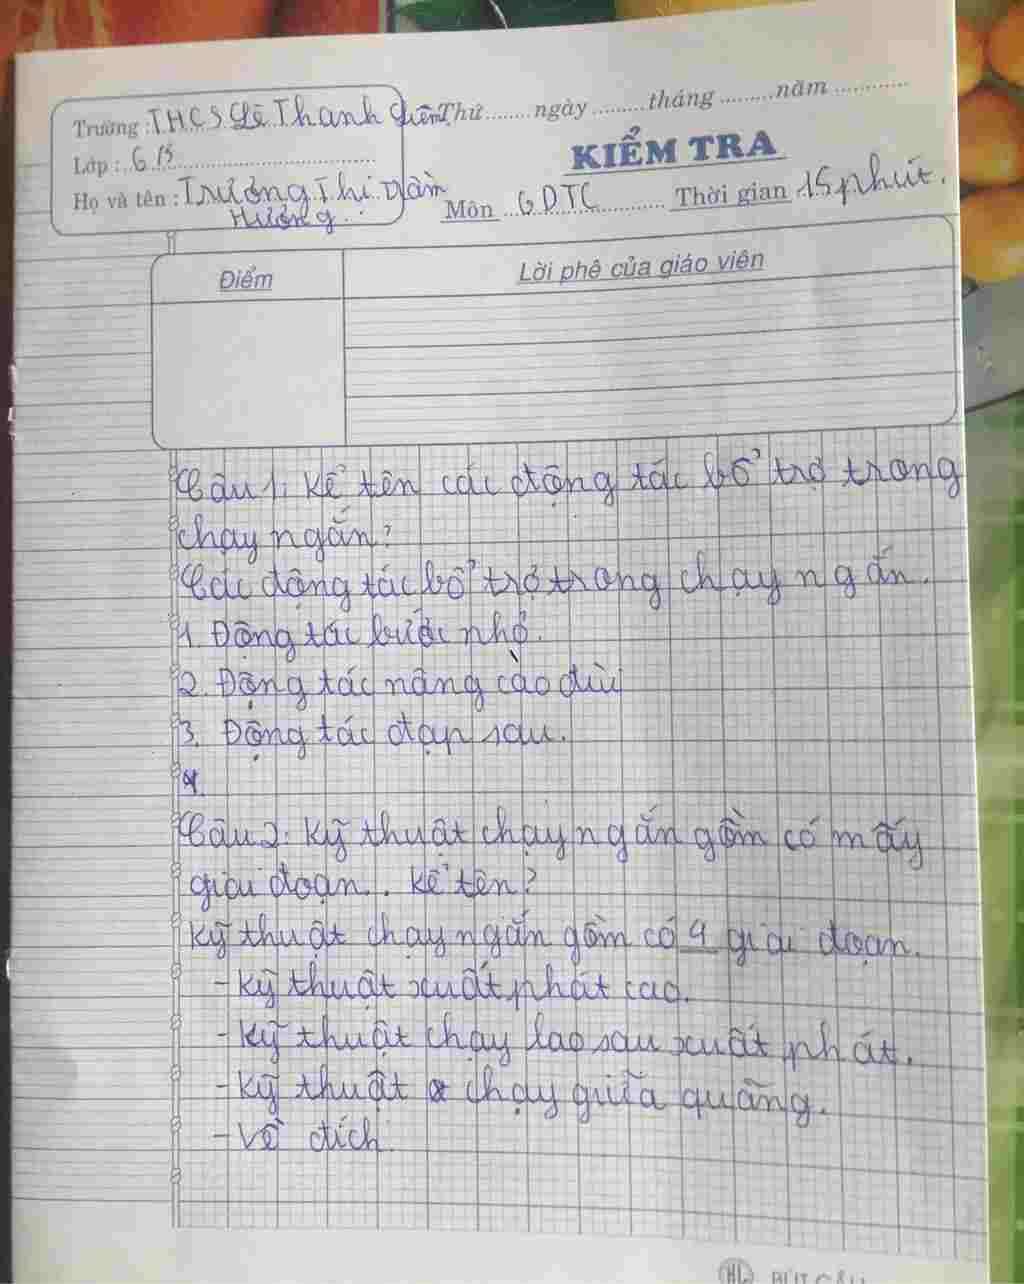 Trường : THCS Lê Thanh Liêm Thứ ....... ngày ........ tháng ........ năm ............
Lớp : 6/3
KIỂM TRA
Họ và tên : Trương Thị Dàm
Hương
Môn GDTC Thời gian 15 phút.
Điểm Lời phê của giáo viên
Câu 1: Kể tên các động tác bổ trợ trong
chạy ngắn?
Các động tác bổ trợ trong chạy ngắn.
1. Động tác bước nhỏ.
2. Động tác nâng cào đùi
3. Động tác đạp sau.
4.
Câu 2: Kỹ thuật chạy ngắn gồm có mấy
giai đoạn.. kể tên?
Kỹ thuật chạy ngắn gồm có 4 giai đoạn.
- Kỹ thuật xuất phát cao.
- Kỹ thuật chạy lao sau xuất phát.
- Kỹ thuật chạy giữa quãng.
- Về đích